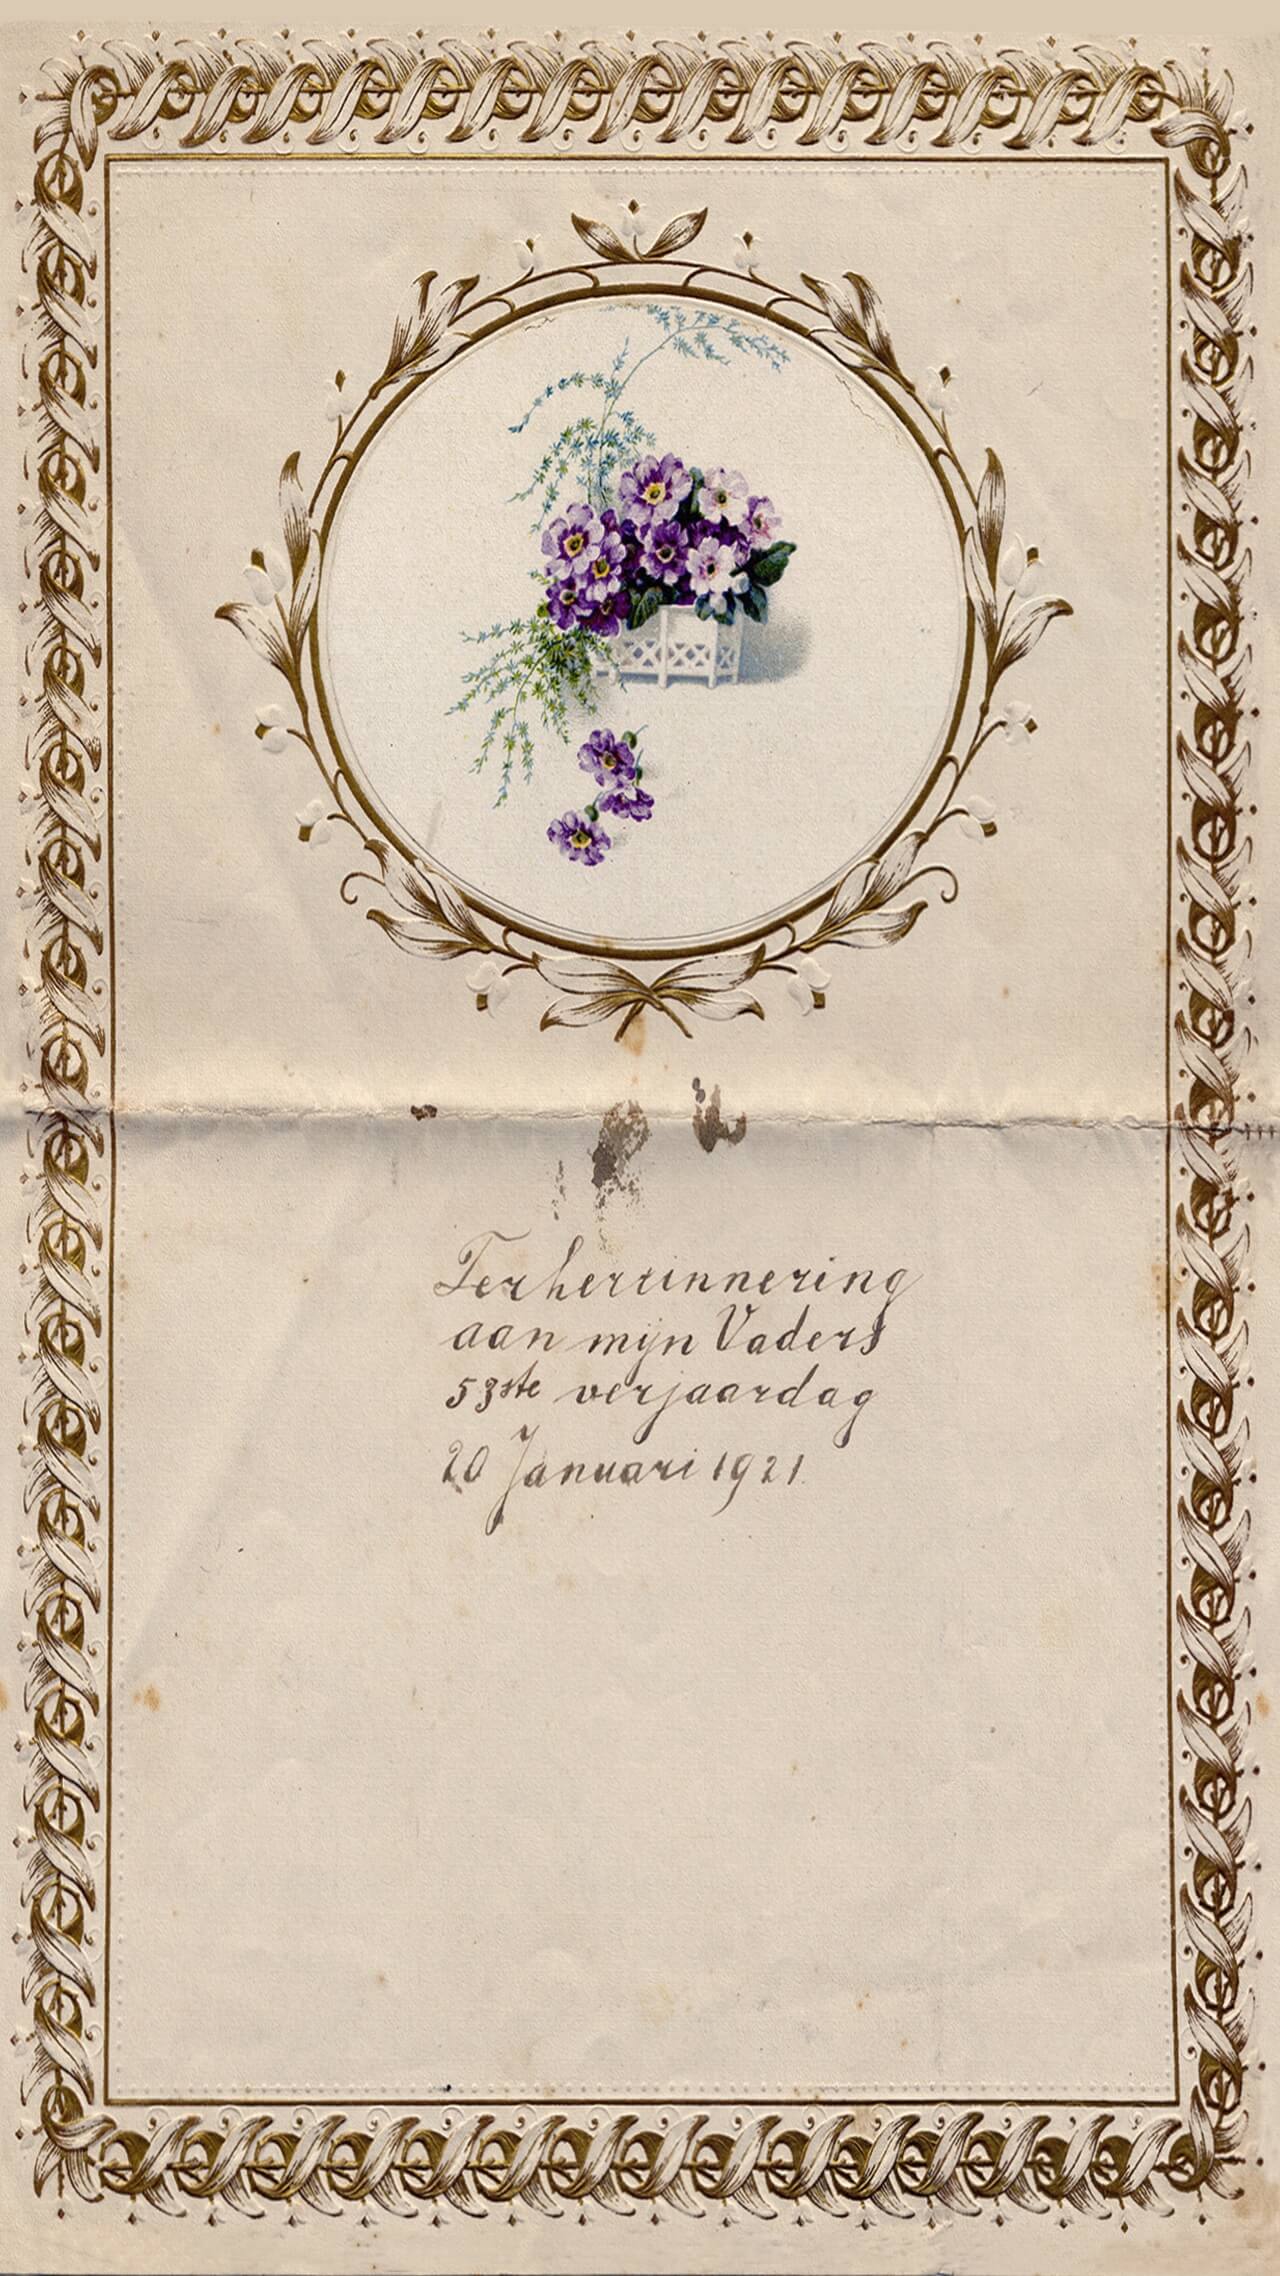 Terherrinnering
aan mijn Vaders
53ste verjaardag
20 Januari 1921.